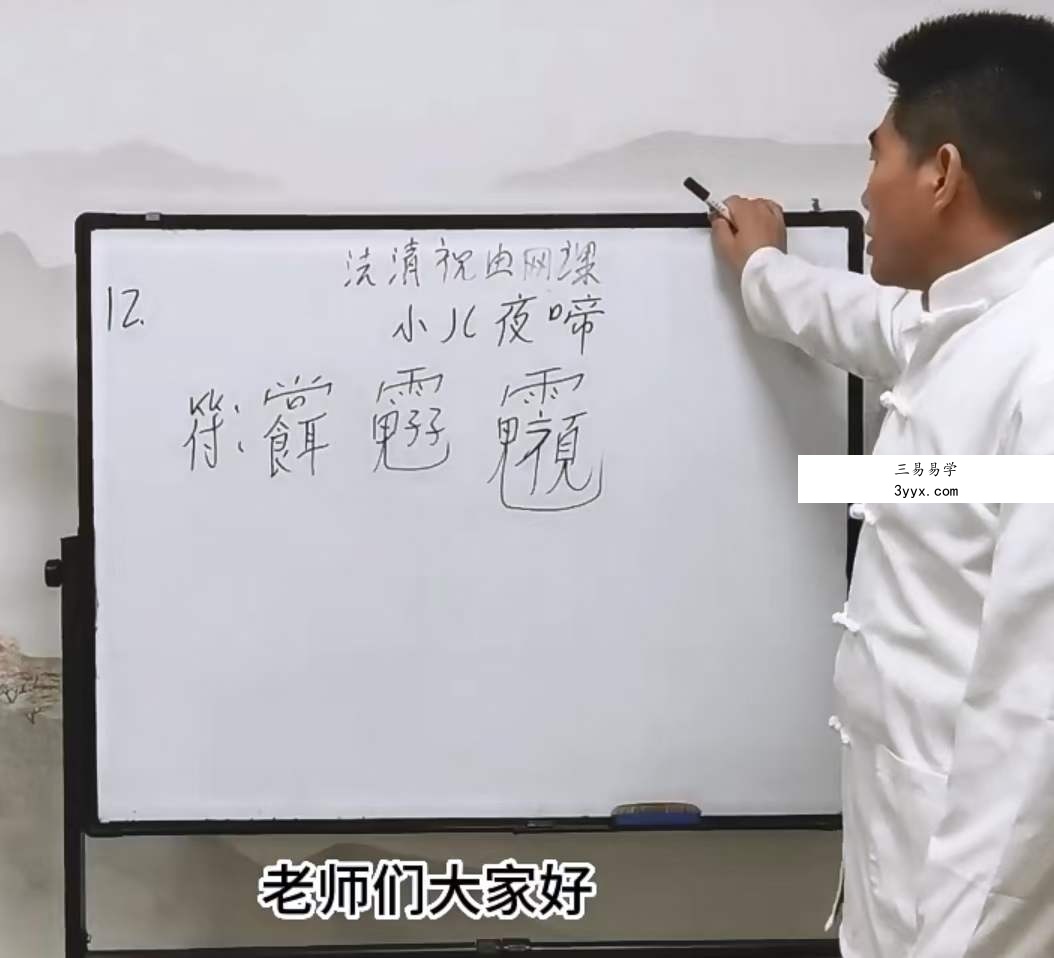 法清祝由网课
12.
小儿夜啼
符:
三易易学
3yyx.com
老师们大家好